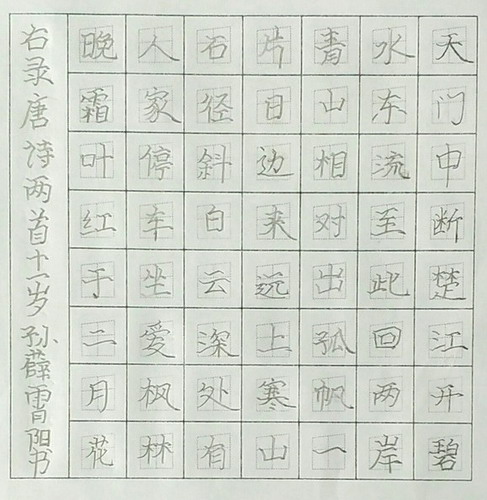 天门中断楚江开碧
水东流至此回两岸
青山相对出孤帆一
片日边来远上寒山
石径斜白云深处有
人家停车坐爱枫林
晚霜叶红于二月花
右录唐诗两首十一岁孙薛霄阳书